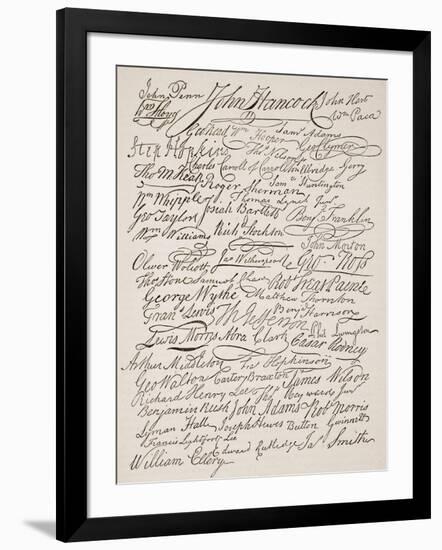 John Penn John Hancock John Hart
Wm Paca
Geo Read Wm Hooper Saml Adams
Geo Clymer
Step Hopkins Thos Nelson jr
Charles Carroll of Carrollton Elbridge Gerry
Tho M:Kean Roger Sherman Saml Huntington
Wm Whipple Thomas Lynch Junr
Geo Taylor Josiah Bartlett Benj Franklin
Wm Williams Richd Stockton
John Morton
Oliver Wolcott Jno Witherspoon Geo. Ross
Thos Stone Samuel Chase Robt Treat Paine
George Wythe Matthew Thornton
Frans Lewis Th Jefferson Benj Harrison
Lewis Morris Abra Clark Phil. Livingston
Caesar Rodney
Arthur Middleton Fras Hopkinson
Geo Walton Carter Braxton James Wilson
Richard Henry Lee Thos Heyward Junr
Benjamin Rush John Adams Robt Morris
Lyman Hall Joseph Hewes Button Gwinnett
Francis Lightfoot Lee
William Ellery Edward Rutledge Jas Smith